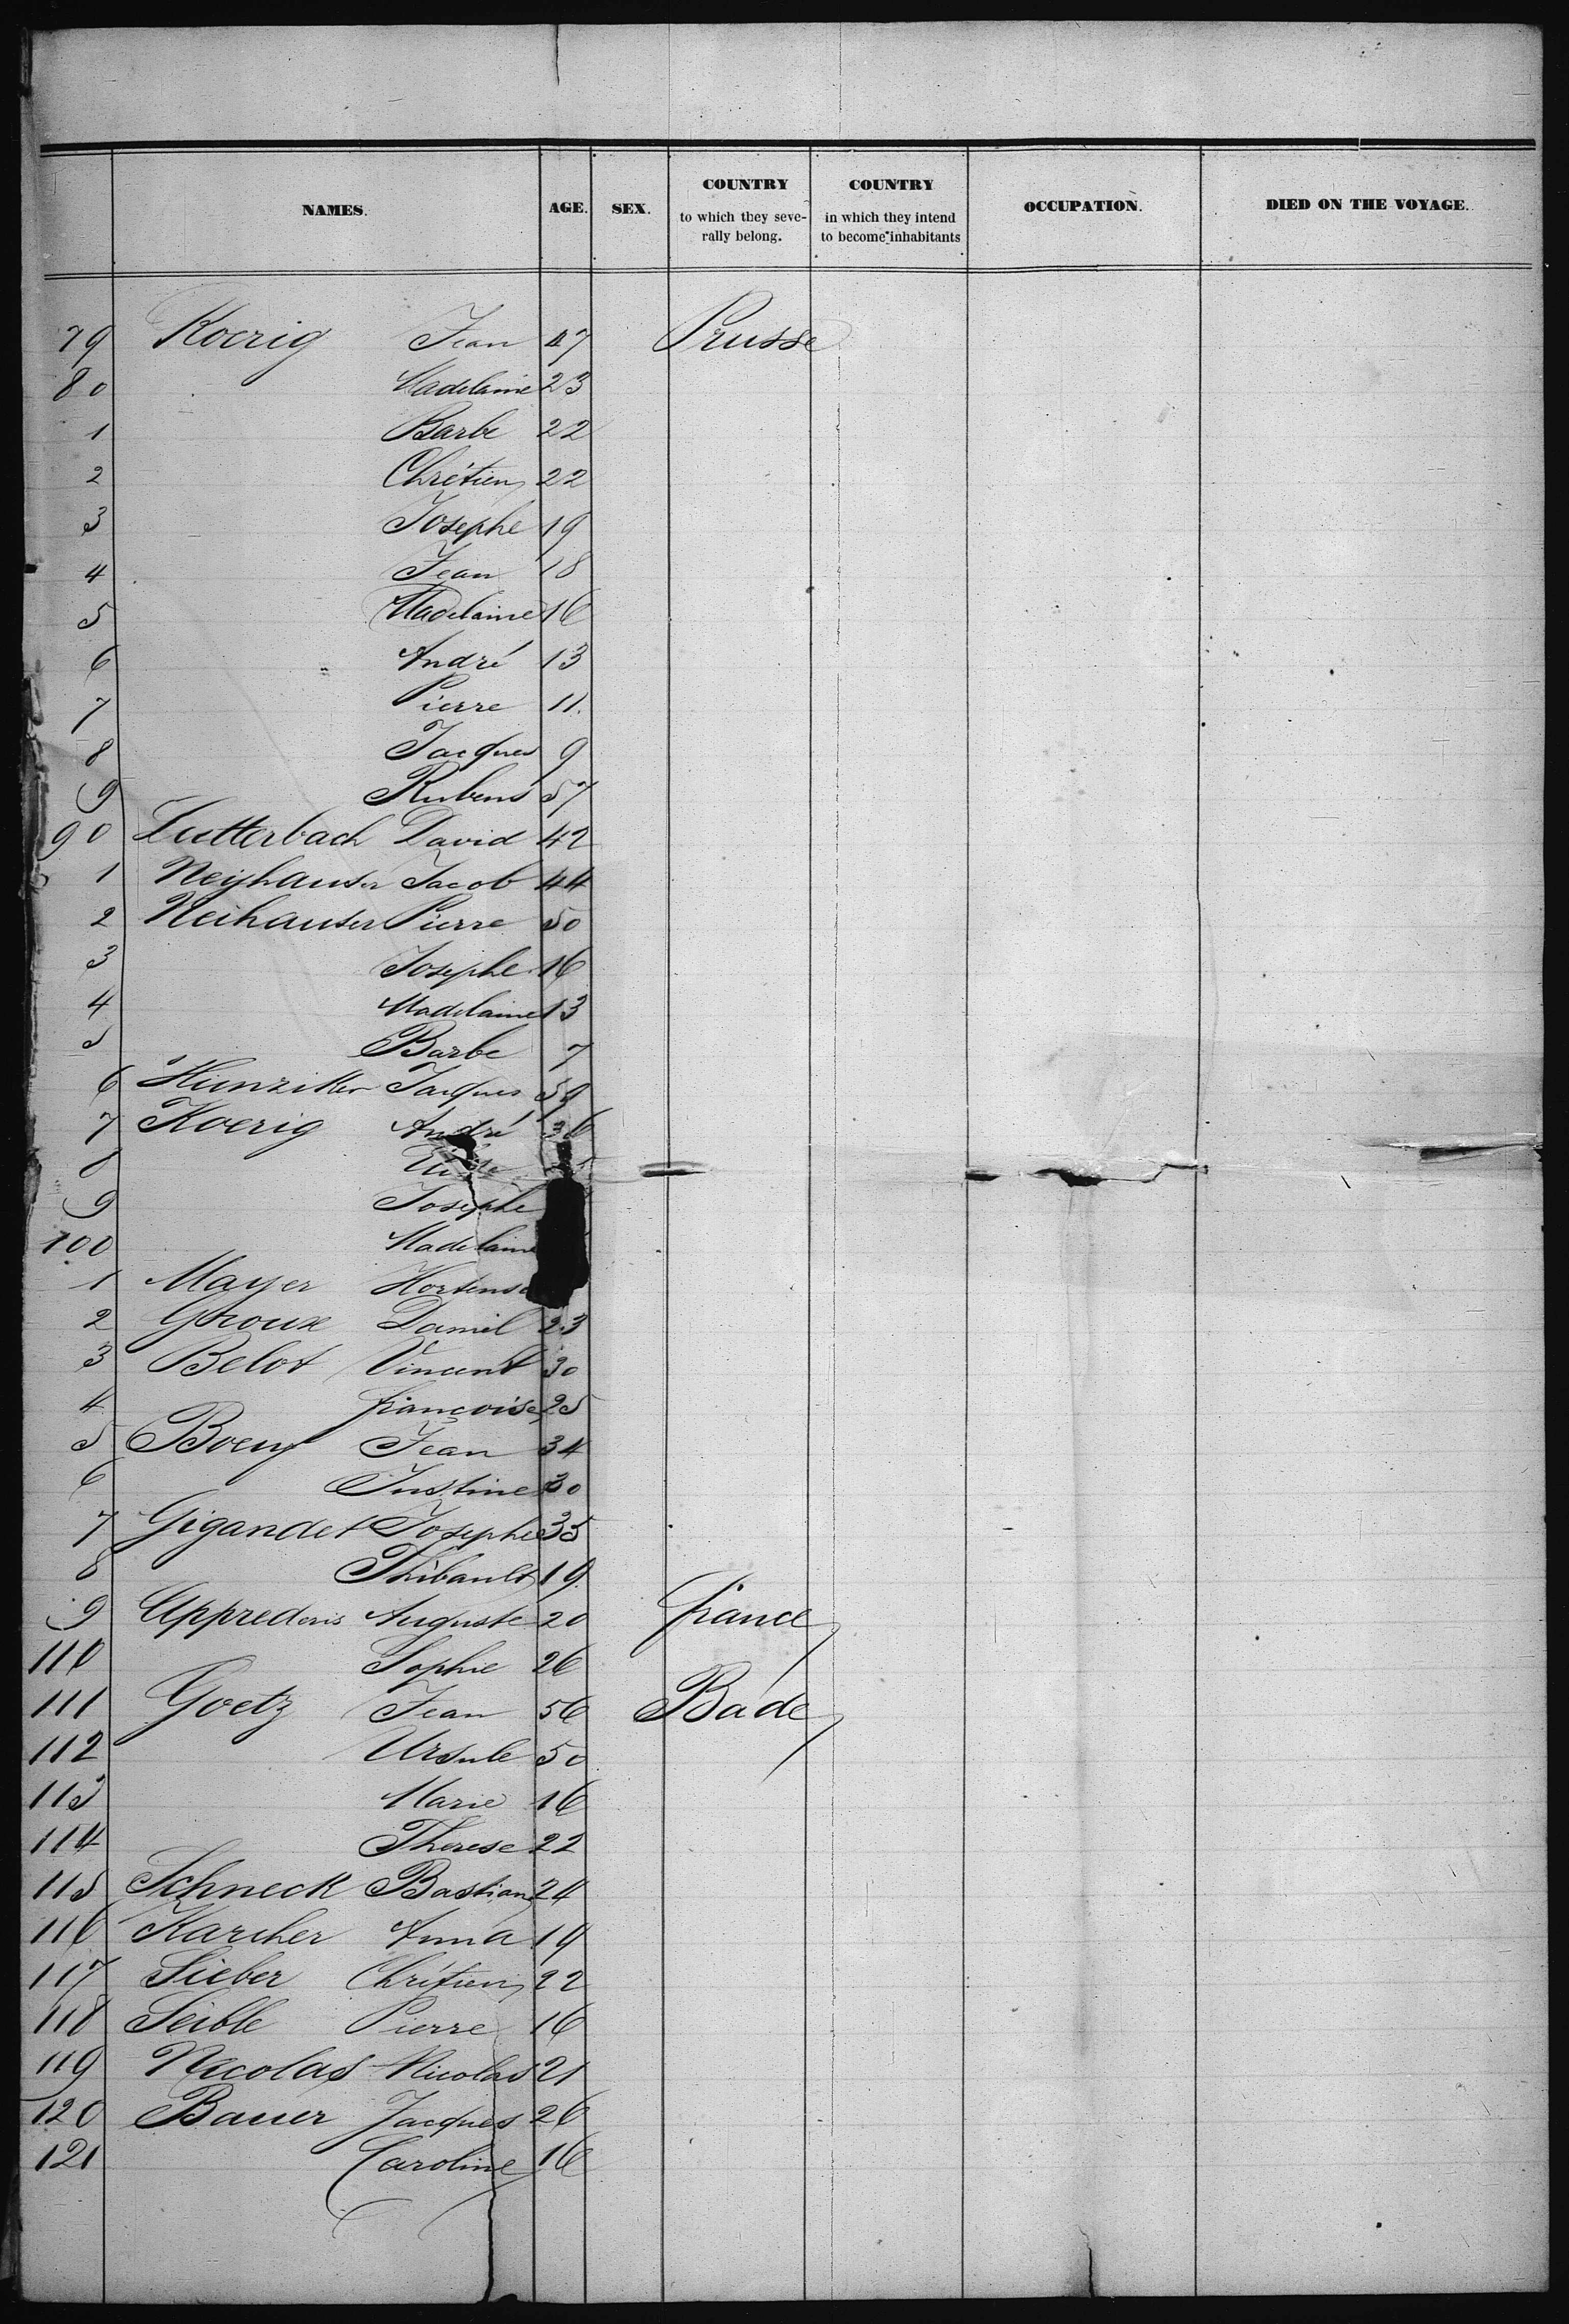 NAMES. AGE. SEX. COUNTRY to which they severally belong. COUNTRY in which they intend to become inhabitants OCCUPATION. DIED ON THE VOYAGE.
79 Koerig Jean 47 Prusse
80 Madelaine 23
1 Barbe 22
2 Chrétien 22
3 Josephe 19
4 Jean 18
5 Madelaine 16
6 André 13
7 Pierre 11.
8 Jacques 9
9 Rubens 57
90 Lutterbach David 42
1 Neyhauser Jacob 44
2 Neihauser Pierre 50
3 Josephe 16
4 Madelaine 13
5 Barbe 7
6 Hunziker Jacques 59
7 Koerig André 36
8
9 Josephe
100 Madelaine
1 Mayer Hortense
2 Groux Daniel 23
3 Belot Vincent 30
4 françoise 25
5 Boeuf Jean 34
6 Justine 30
7 Gigandet Josephe 35
8 Thibault 19
9 Auguste 20 france
110 Sophie 26
111 Goetz Jean 56 Bade
112 Ursule 50
113 Marie 16
114 Therese 22
115 Schneck Bastian 24
116 Karcher Anna 19
117 Sieber Chrétien 22
118 Seible Pierre 16
119 Nicolas Nicolas 21
120 Bauer Jacques 26
121 Caroline 16